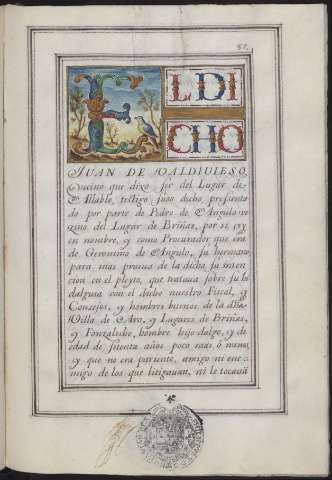 87.
EL DI
CHO
JUAN DE VALDIVIESO,
vecino que dixo ser del Lugar de
Villalvo, testigo suso dicho presenta
do por parte de Pedro de Angulo ve
zino del Lugar de Briñas, por si, y
en nombre, y como Procurador que era
de Geronimo de Angulo, su hermano
para mas prueua de la dicha su inten
cion en el pleyto, que tratauan sobre su hi
dalguia con el dicho nuestro Fiscal, y
Concejos, y hombres buenos de la dha
Villa de Aro, y Lugares de Briñas,
y Fonzaleche, hombre hijo dalgo, y de
edad de setenta años poco mas, ò menos
y que no era pariente, amigo ni ene
migo de los que litigauan, ni le tocaua